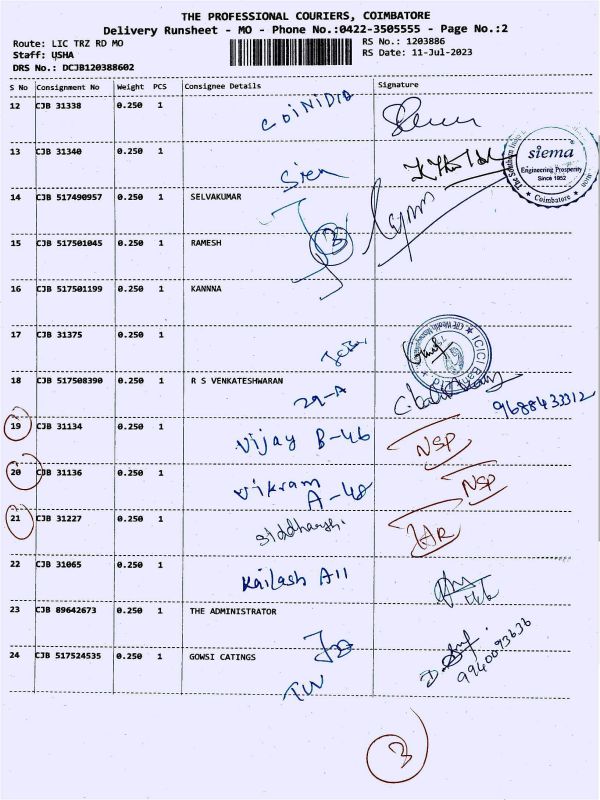 THE PROFESSIONAL COURIERS, COIMBATORE
Delivery Runsheet - MO - Phone No.:0422-3505555 - Page No.:2
Route: LIC TRZ RD MO
RS No.: 1203886
Staff: USHA
RS Date: 11-Jul-2023
DRS No.: DCJB120388602
S No Consignment No Weight PCS Consignee Details Signature
12 CJB 31338 0.250 1 COINIDIA
13 CJB 31340 0.250 1 Siem
siema
Engineering Prosperity
Since 1952
Coimbatore
14 CJB 517490957 0.250 1 SELVAKUMAR
15 CJB 517501045 0.250 1 RAMESH
3
16 CJB 517501199 0.250 1 KANNNA
17 CJB 31375 0.250 1
ICICI Bank
18 CJB 517508390 0.250 1 R S VENKATESHWARAN
29-A
9688433312
19 CJB 31134 0.250 1 Vijay B-46 NSP
20 CJB 31136 0.250 1 Vikram A-48 NSP
21 CJB 31227 0.250 1
22 CJB 31065 0.250 1 Kailash A11
23 CJB 89642673 0.250 1 THE ADMINISTRATOR
24 CJB 517524535 0.250 1 GOWSI CATINGS
9940093636
3